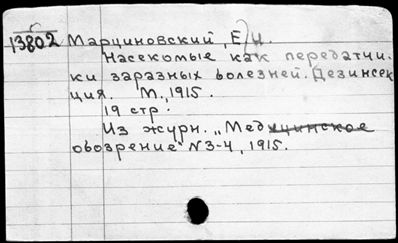 13802 Марциновский, Е.И.
Насекомые как передатчи-
ки заразных болезней. Дезинсек
ция. М., 1915.
19 стр.
Из журн. „Медицинское
обозрение" N3-4, 1915.